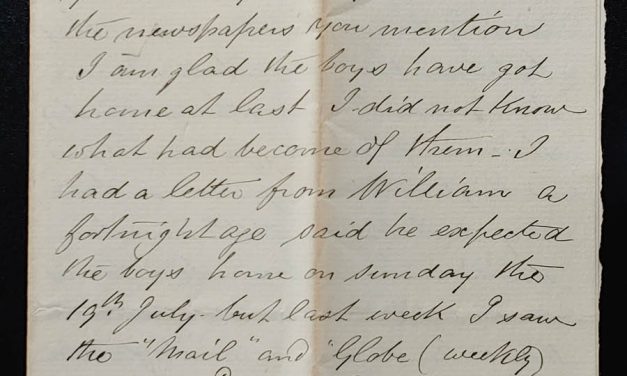 the newspapers you mention
I am glad the boys have got
home at last I did not know
what had become of them - I
had a letter from William a
fortnight age said he expected
the boys home on sunday the
19th. July. but last week I saw
the "Mail" and "Globe (weekly)